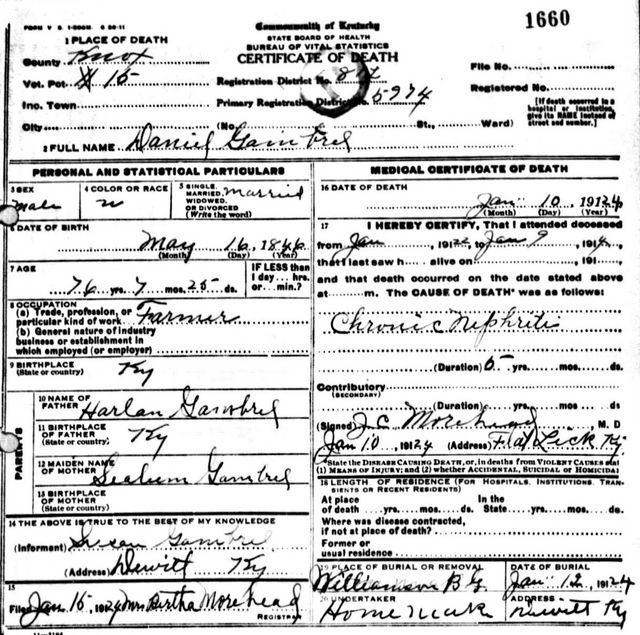 FORM V. S. 1-500M 6-20-11
Commonwealth of Kentucky
1660
1 PLACE OF DEATH
STATE BOARD OF HEALTH
BUREAU OF VITAL STATISTICS
CERTIFICATE OF DEATH
County Knox
File No.
Vot. Pct. 15
Registration District No.
Registered No.
Inc. Town
Primary Registration District No. 5974
[If death occurred in a hospital or institution, give its NAME instead of street and number.]
City (No. St., Ward)
2 FULL NAME Daniel Gambrel
PERSONAL AND STATISTICAL PARTICULARS
3 SEX male
4 COLOR OR RACE w
5 SINGLE, MARRIED, WIDOWED, OR DIVORCED (Write the word) Married
6 DATE OF BIRTH
May 16, 1846
(Month) (Day) (Year)
7 AGE
76 yrs. 7 mos. 25 ds.
IF LESS than 1 day... hrs. or min.?
8 OCCUPATION
(a) Trade, profession, or particular kind of work Farmer
(b) General nature of industry business or establishment in which employed (or employer)
9 BIRTHPLACE
(State or country) Ky
PARENTS
10 NAME OF FATHER Harlan Gambrel
11 BIRTHPLACE OF FATHER
(State or country) Ky
12 MAIDEN NAME OF MOTHER Gambrel
13 BIRTHPLACE OF MOTHER
(State or country)
14 THE ABOVE IS TRUE TO THE BEST OF MY KNOWLEDGE
(Informant) Susan Gambrel
(Address) Dewitt Ky
15
Filed Jan 15, 1924 Mrs Bertha Morehead
REGISTRAR
MEDICAL CERTIFICATE OF DEATH
16 DATE OF DEATH
Jan 10, 1924
(Month) (Day) (Year)
17 I HEREBY CERTIFY, That I attended deceased
from Jan , 191 , to Jan 9 , 191
that I last saw h alive on , 191 ,
and that death occurred on the date stated above
at m. The CAUSE OF DEATH* was as follows:
Chronic Nephritis
(Duration) yrs. mos. ds.
Contributory
(SECONDARY)
(Duration) yrs. mos. ds.
(Signed) J. C. Morehead M. D
Jan 10, 1924 (Address) Flat Lick Ky
*State the DISEASE CAUSING DEATH, or, in deaths from VIOLENT CAUSES state (1) MEANS OF INJURY; and (2) whether ACCIDENTAL, SUICIDAL or HOMICIDAL
18 LENGTH OF RESIDENCE (FOR HOSPITALS, INSTITUTIONS, TRANSIENTS OR RECENT RESIDENTS)
At place of death yrs. mos. ds. In the State yrs. mos. ds.
Where was disease contracted, if not at place of death?
Former or usual residence
19 PLACE OF BURIAL OR REMOVAL
Williamson B G
DATE OF BURIAL
Jan 12, 1924
20 UNDERTAKER
Home Make
ADDRESS
Dewitt Ky